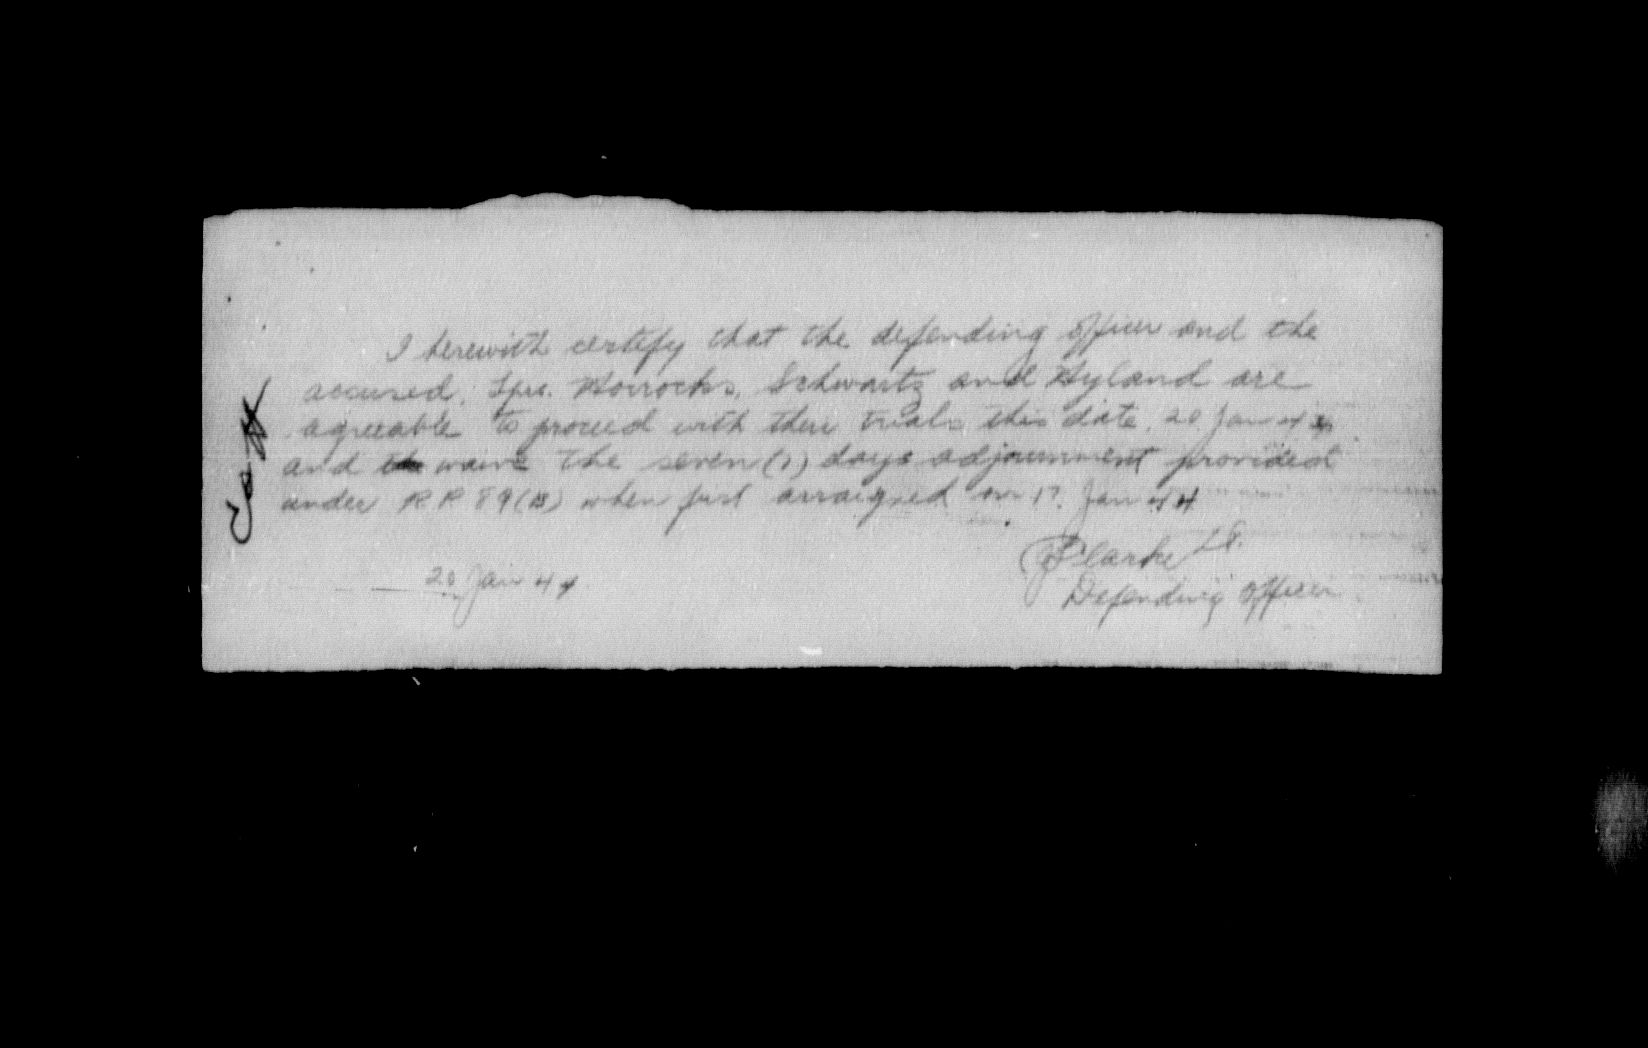 I herewith certify that the defending officer and the
accused, Sprs. Horrocks, Schwartz and Hyland are
agreeable to proceed with their trials this date, 20 Jan 44
and waive the seven (7) days adjournment provided
under RP 89(B) when first arraigned on 17 Jan 44
Clarke Lt.
20 Jan 44
Defending Officer